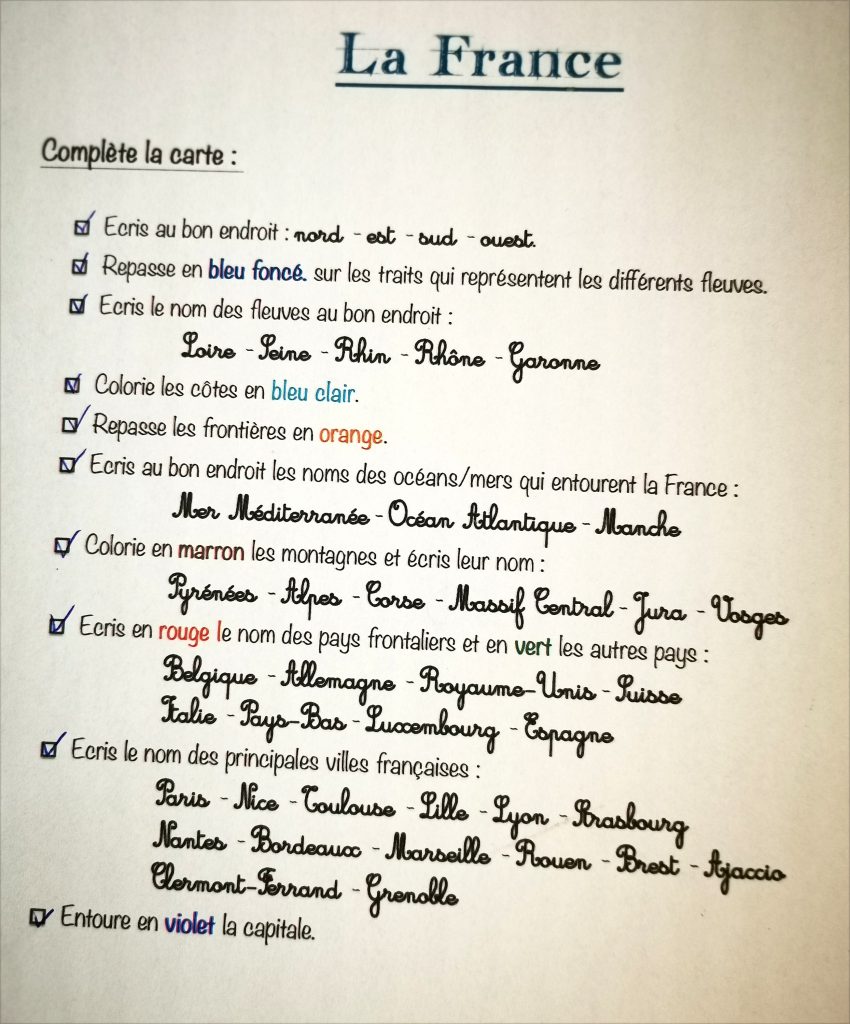 La France
Complète la carte :
Ecris au bon endroit : nord - est - sud - ouest.
Repasse en bleu foncé. sur les traits qui représentent les différents fleuves.
Ecris le nom des fleuves au bon endroit :
Loire - Seine - Rhin - Rhône - Garonne
Colorie les côtes en bleu clair.
Repasse les frontières en orange.
Ecris au bon endroit les noms des océans/mers qui entourent la France :
Mer Méditerranée - Océan Atlantique - Manche
Colorie en marron les montagnes et écris leur nom :
Pyrénées - Alpes - Corse - Massif Central - Jura - Vosges
Ecris en rouge le nom des pays frontaliers et en vert les autres pays :
Belgique - Allemagne - Royaume-Unis - Suisse
Italie - Pays-Bas - Luxembourg - Espagne
Ecris le nom des principales villes françaises :
Paris - Nice - Toulouse - Lille - Lyon - Strasbourg
Nantes - Bordeaux - Marseille - Rouen - Brest - Ajaccio
Clermont-Ferrand - Grenoble
Entoure en violet la capitale.